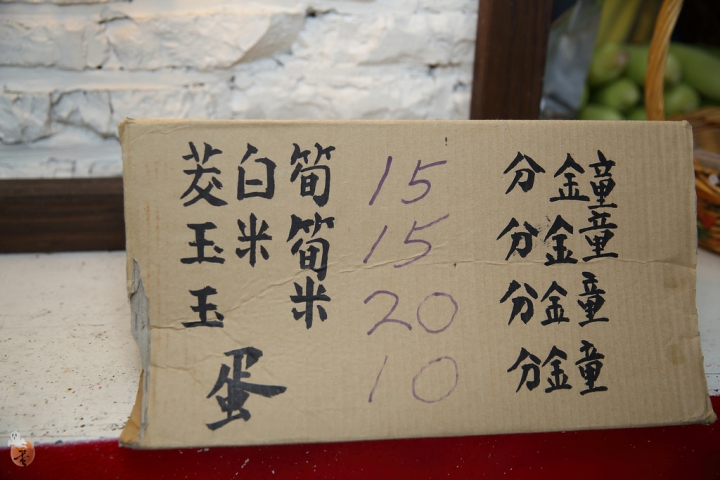 茭白筍 15 分鐘
玉米筍 15 分鐘
玉米 20 分鐘
蛋 10 分鐘